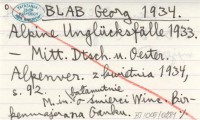 BLAB Georg 1934.
Alpine Unglücksfälle 1933.
— Mitt. Dtsch. u. Oester.
Alpenver. z kwietnia 1934,
s. 92.
M. in. o śmierci Winc. Bir-
kenmajera